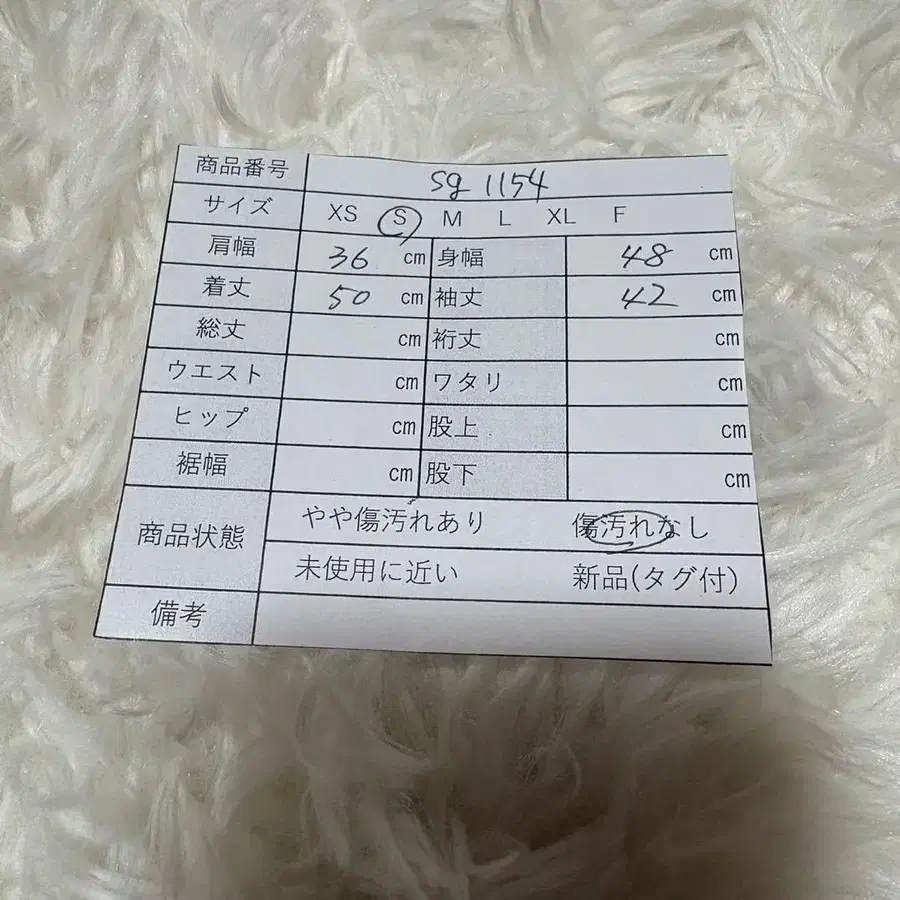 商品番号 sg 1154
サイズ XS S M L XL F
肩幅 36 cm 身幅 48 cm
着丈 50 cm 袖丈 42 cm
総丈 cm 裄丈 cm
ウエスト cm ワタリ cm
ヒップ cm 股上 cm
裾幅 cm 股下 cm
商品状態 やや傷汚れあり 傷汚れなし
未使用に近い 新品(タグ付)
備考